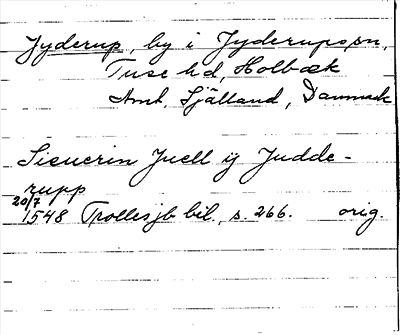 Jyderup, by i Jyderups sn,
Tuse hd, Holbæk
Amt, Själland, Danmark
Sieuerin Juell ij Judde-
rupp
20/7
1548 Trolles jb bil., s. 266. orig.